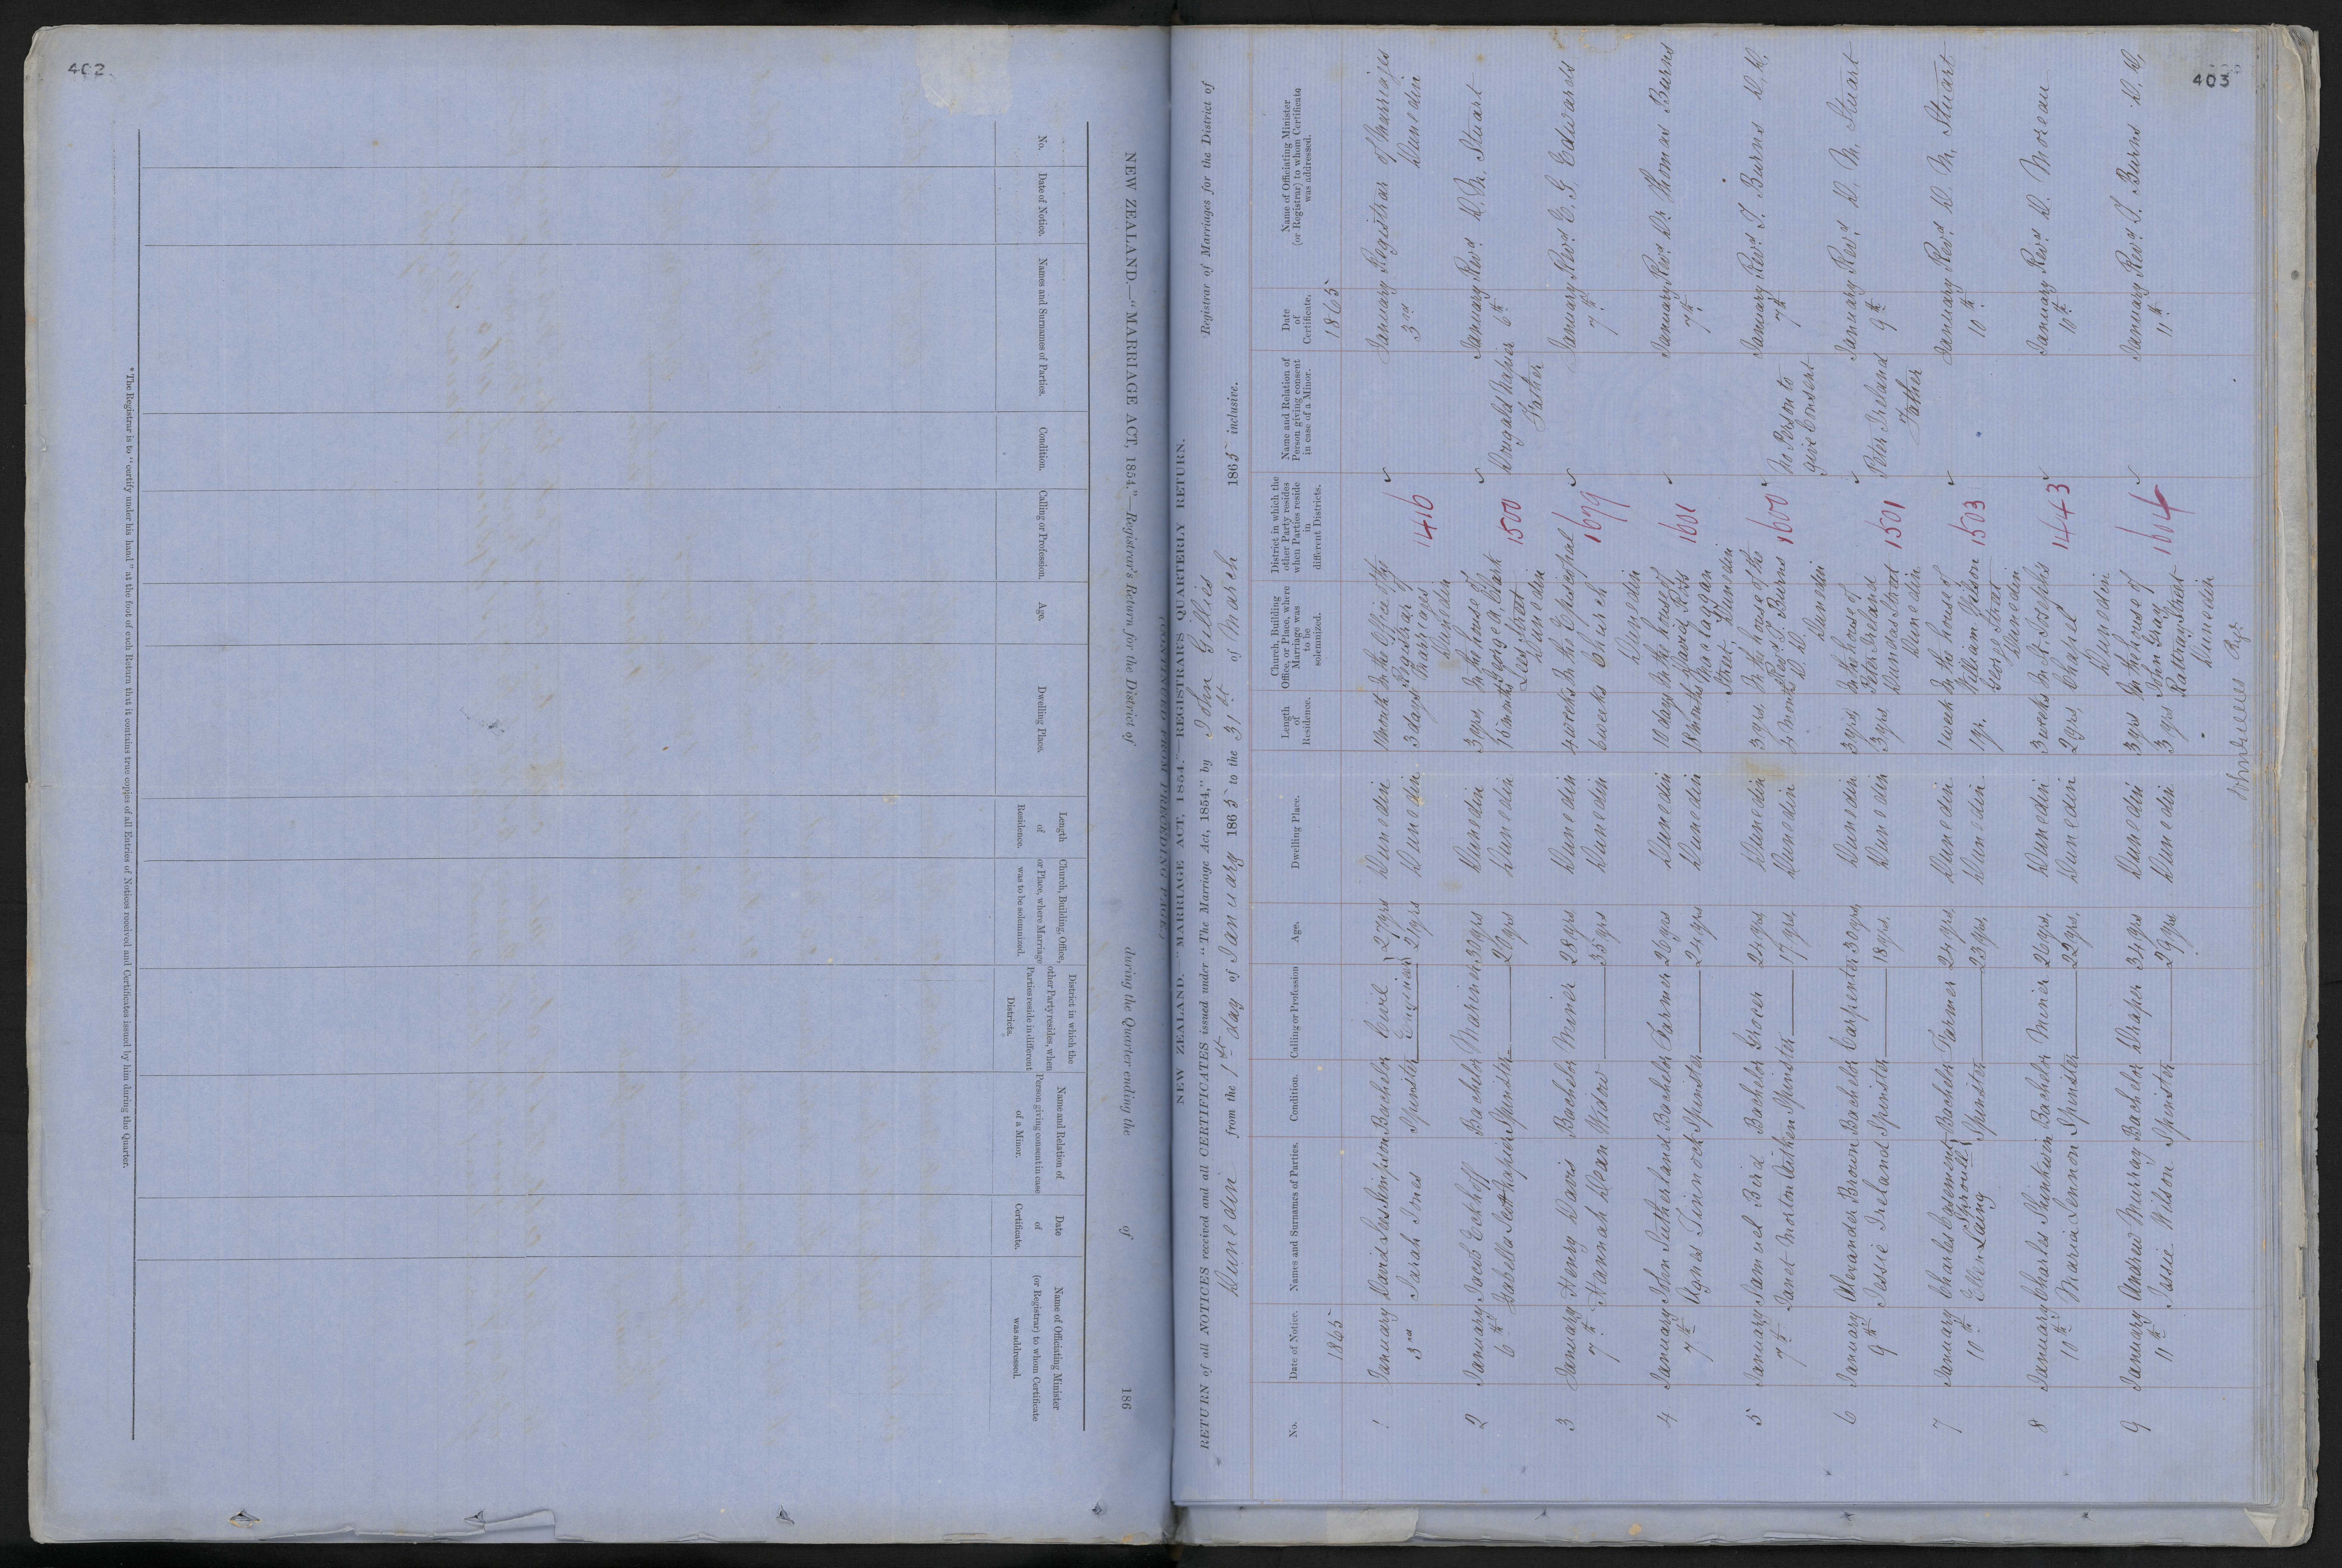 402
NEW ZEALAND.—"MARRIAGE ACT, 1854."—Registrar's Return for the District of during the Quarter ending the of 186
No.
Date of Notice.
Names and Surnames of Parties.
Condition.
Calling or Profession.
Age.
Dwelling Place.
Length
of
Residence.
Church, Building, Office,
or Place, where Marriage
was to be solemnized.
District in which the
other Party resides, when
Parties reside in different
Districts.
Name and Relation of
Person giving consent in case
of a Minor.
Date
of
Certificate.
Name of Officiating Minister
(or Registrar) to whom Certificate
was addressed.
* The Registrar is to "certify under his hand" at the foot of each Return that it contains true copies of all Entries of Notices received and Certificates issued by him during the Quarter.
403
(CONTINUED FROM PRECEDING PAGE)
NEW ZEALAND.—"MARRIAGE ACT, 1854."—REGISTRAR'S QUARTERLY RETURN.
RETURN of all NOTICES received and all CERTIFICATES issued under "The Marriage Act, 1854," by John Gillies Registrar of Marriages for the District of
Dunedin from the 1st day of January 1865 to the 31st of March 1865 inclusive.
No.
Date of Notice.
Names and Surnames of Parties.
Condition.
Calling or Profession
Age.
Dwelling Place.
Length
of
Residence.
Church, Building
Office, or Place, where
Marriage was
to be
solemnized.
District in which the
other Party resides
when Parties reside
in
different Districts.
Name and Relation of
Person giving consent
in case of a Minor.
Date
of
Certificate.
Name of Officiating Minister
(or Registrar) to whom Certificate
was addressed.
1865 1865
1 January David Lees Simpson Bachelor Civil 27yrs Dunedin 1 month In the Office of the January Registrar of Marriages
3rd Sarah Jones Spinster Engineer 21yrs Dunedin 3 days Registrar of Marriages Dunedin 1416 3rd Dunedin
2 January Jacob Eckhoff Bachelor Mariner 33yrs Dunedin 3 yrs. In the house of January Revd. D. M. Stuart
6th Isabella Scott Napier Spinster 20yrs Dunedin 16 months George A. Clark Lees Street Dunedin 1500 Dugald Napier Father 6th
3 January Henry Davis Bachelor Miner 28yrs. Dunedin 4 weeks In the Episcopal January Revd. E. G. Edwards
7th Hannah Dean Widow 35yrs Dunedin 6 weeks Church Dunedin 1679 7th
4 January John Sutherland Bachelor Farmer 26yrs Dunedin 10 days In the house of January Revd. Dr. Thomas Burns
7th Agnes Tinnock Spinster 24yrs Dunedin 18 months David Ross Maclaggan Street, Dunedin 1601 7th
5 January Samuel Bird Bachelor Grocer 24yrs. Dunedin 3 yrs. In the house of the January Revd. T. Burns D.D.
7th Janet Morton Aitken Spinster 17yrs. Dunedin 4 months Revd. T. Burns D.D. Dunedin 1600 No Person to give Consent 7th
6 January Alexander Brown Bachelor Carpenter 30yrs. Dunedin 3 yrs. In the house of January Revd. D. M. Stuart
9th Jessie Ireland Spinster 18yrs. Dunedin 3 yrs. Peter Ireland Dundas Street Dunedin 1501 Peter Ireland Father 9th
7 January Charles Casement Sproull Bachelor Farmer 24yrs. Dunedin 1 week In the house of January Revd. D. M. Stuart
10th Ellen Laing Spinster 23yrs. Dunedin 1 yr. William George Street Dunedin 1503 10th
8 January Charles Shinkwin Bachelor Miner 26yrs. Dunedin 3 weeks In St. Josephs January Revd. D. Moreau
10th Maria Lennon Spinster 22yrs. Dunedin 2 yrs. Chapel Dunedin 1443 10th
9 January Andrew Murray Bachelor Draper 34yrs Dunedin 3 yrs In the house of January Revd. T. Burns D.D.
11th Jessie Wilson Spinster 29yrs. Dunedin 3 yrs John Gray Rattray Street Dunedin 1604 11th
John Gillies Regr.